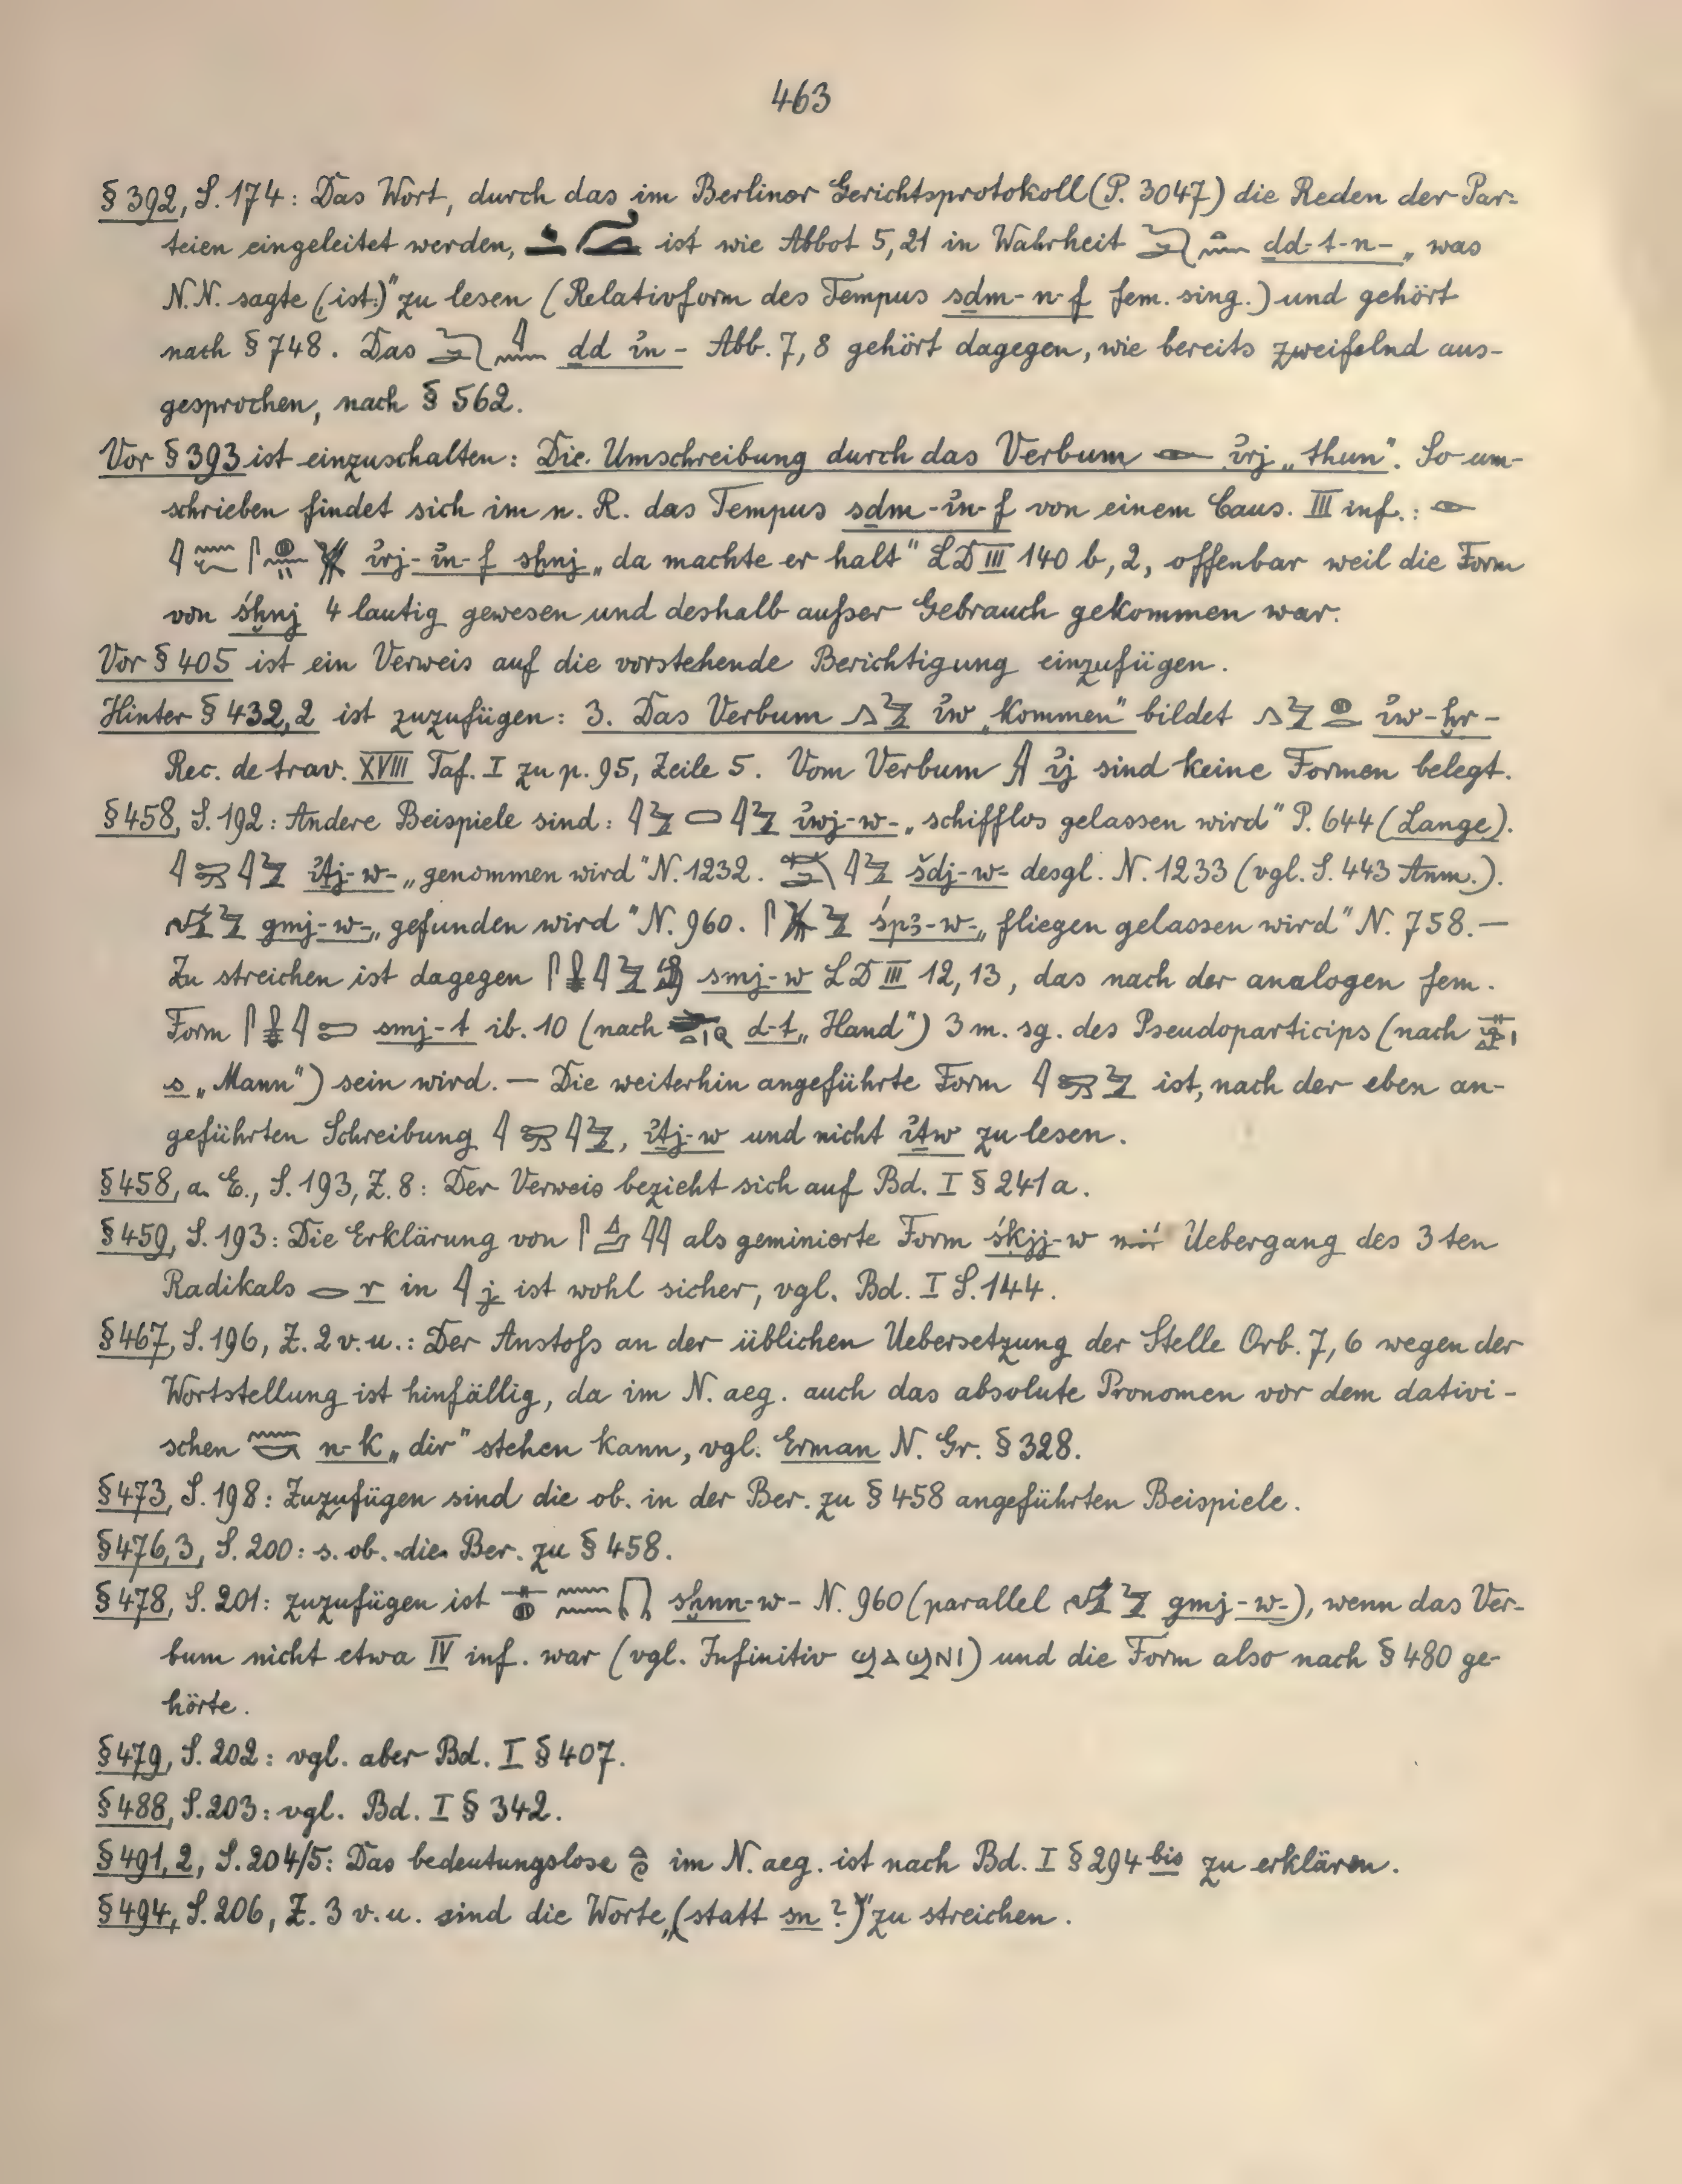 463
§ 392, S. 174: Das Wort, durch das im Berliner Gerichtsprotokoll (P. 3047) die Reden der Par-
teien eingeleitet werden, ist wie Abbot 5, 21 in Wahrheit ḏd-t-n- „was
N.N. sagte (ist:)" zu lesen (Relativform des Tempus sḏm-n-f fem. sing.) und gehört
nach § 748. Das ḏd ı͗n- Abb. 7, 8 gehört dagegen, wie bereits zweifelnd aus-
gesprochen, nach § 562.
Vor § 393 ist einzuschalten: Die Umschreibung durch das Verbum 𓁹 ı͗rj „thun". So um-
schrieben findet sich im n. R. das Tempus sḏm-ı͗n-f von einem Caus. III inf.: 𓁹
ı͗rj-ı͗n-f sḫnj „da machte er halt" LD III 140 b, 2, offenbar weil die Form
von śḫnj 4 lautig gewesen und deshalb außer Gebrauch gekommen war.
Vor § 405 ist ein Verweis auf die vorstehende Berichtigung einzufügen.
Hinter § 432,2 ist zuzufügen: 3. Das Verbum 𓂻𓅱 ı͗w „kommen" bildet 𓂻𓅱𓐍𓂋 ı͗w-ḫr-
Rec. de trav. XVIII Taf. I zu p. 95, Zeile 5. Vom Verbum 𓇍 ı͗j sind keine Formen belegt.
§ 458, S. 192: Andere Beispiele sind: 𓇋𓅱 𓇋𓅱 ı͗wj-w- „schifflos gelassen wird" P. 644 (Lange).
𓇋𓍿𓇋𓅱 ı͗ṯj-w- „genommen wird" N. 1232. 𓇋𓅱 šdj-w- desgl. N. 1233 (vgl. S. 443 Anm.).
𓅠𓅱 gmj-w- „gefunden wird" N. 960. 𓋴𓅮𓅱 śpꜣ-w- „fliegen gelassen wird" N. 758. —
Zu streichen ist dagegen smj-w LD III 12, 13, das nach der analogen fem.
Form smj-t ib. 10 (nach d-t „Hand") 3 m. sg. des Pseudoparticips (nach
s „Mann") sein wird. — Die weiterhin angeführte Form 𓇋𓍿𓅱 ist, nach der eben an-
geführten Schreibung 𓇋𓍿𓇋𓅱, ı͗ṯj-w und nicht ı͗ṯw zu lesen.
§ 458, a. E., S. 193, Z. 8: Der Verweis bezieht sich auf Bd. I § 241 a.
§ 459, S. 193: Die Erklärung von 𓋴𓈎𓇋𓇋 als geminierte Form śkjj-w mit Uebergang des 3 ten
Radikals 𓂋 r in 𓇋 j ist wohl sicher, vgl. Bd. I S. 144.
§ 467, S. 196, Z. 2 v. u.: Der Anstoß an der üblichen Uebersetzung der Stelle Orb. 7, 6 wegen der
Wortstellung ist hinfällig, da im N. aeg. auch das absolute Pronomen vor dem dativi-
schen 𓈖𓎡 n-k „dir" stehen kann, vgl. Erman N. Gr. § 328.
§ 473, S. 198: Zuzufügen sind die ob. in der Ber. zu § 458 angeführten Beispiele.
§ 476,3, S. 200: s. ob. die Ber. zu § 458.
§ 478, S. 201: zuzufügen ist 𓊃𓐍𓈖𓈖 sḫnn-w- N. 960 (parallel 𓅠𓅱 gmj-w-), wenn das Ver-
bum nicht etwa IV inf. war (vgl. Infinitiv ϣⲁϣⲛⲓ) und die Form also nach § 480 ge-
hörte.
§ 479, S. 202: vgl. aber Bd. I § 407.
§ 488, S. 203: vgl. Bd. I § 342.
§ 491, 2, S. 204/5: Das bedeutungslose 𓏏𓏲 im N. aeg. ist nach Bd. I § 294 bis zu erklären.
§ 494, S. 206, Z. 3 v. u. sind die Worte „(statt sn ?)" zu streichen.